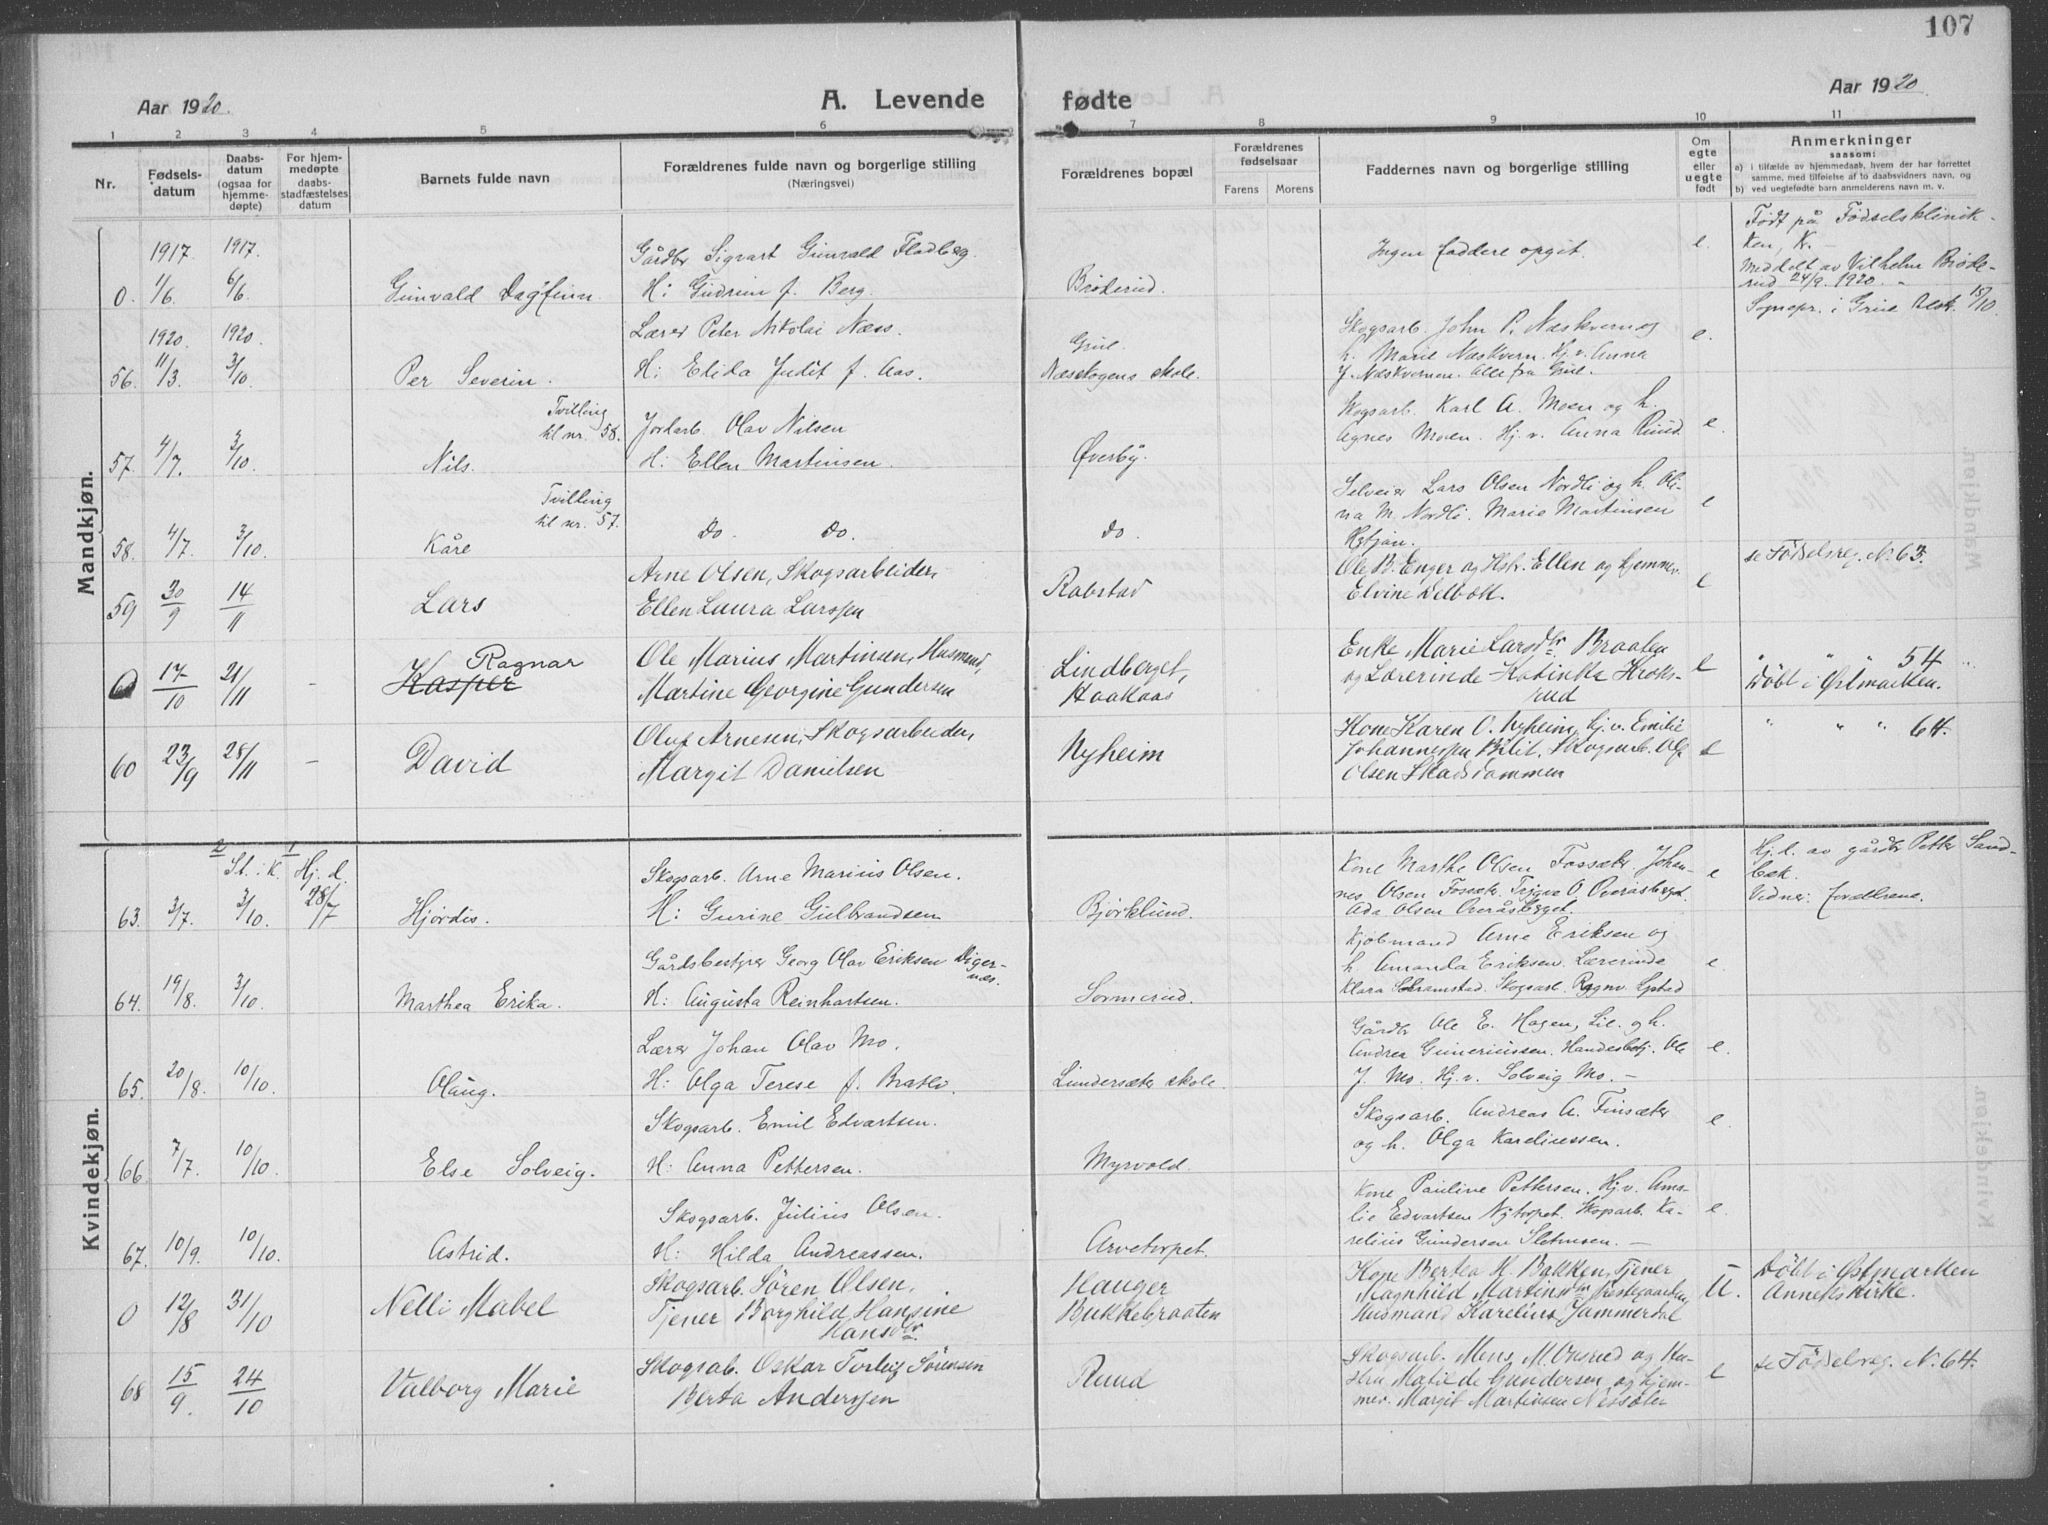 107
Aar 1920.
A. Levende
fødte
Aar 1920.
1 2 3 4 5 6 7 8 9 10 11
Nr.
Fødsels-
datum
Daabs-
datum
(ogsaa for
hjemme-
døpte)
For hjem-
medøpte
daabs-
stadfæstelses
datum
Barnets fulde navn
Forældrenes fulde navn og borgerlige stilling
(Næringsvei)
Forældrenes bopæl
Forældrenes
fødselsaar
Farens Morens
Faddernes navn og borgerlige stilling
Om
egte
eller
uegte
født
Anmerkninger
saasom:
a) i tilfælde av hjemmedaab, hvem der har forrettet
samme, med tilføielse af to daabsvidners navn, og
b) ved uegtefødte barn anmelderens navn m. v.
Mandkjøn.
1917. 1917.
0. 1/6. 6/6. Gunvald Dagfinn.
Gårdbr Sigvart Gunvald Fladberg.
H: Gudrun f. Berg.
Brøderud.
Ingen faddere opgit.
e.
Født på Fødselsklinik-
ken, K. -
Meddelt av Vilhelm Brøde-
rud 24/9. 1920.
Sognepr. i Grue Attest. 15/10.
1920. 1920.
56. 11/3. 3/10. Per Severin.
Lærer Peter Nikolai Næss.
H: Elida Judit f. Aas.
Grue.
Næsskogens skole.
Skogsarb. John P. Næskvern og
h. Marie Næskvern. Hj.v. Anna
J. Næskvernen. Alle fra Grue.
e.
57. 4/7. 3/10. Nils.
Tvilling
til nr. 58.
Jordarb. Olav Nilsen
H: Ellen Martinsen.
Øverby.
Skogsarb. Karl A. Moen og h.
Agnes Moen. Hj.v. Anna Ruud.
e.
58. 4/7. 3/10. Kåre
Tvilling
til nr. 57.
do. do.
do.
Selveier Lars Olsen Nordli og h. Oli-
na M. Nordli. Marie Martinsen
e
59 30/9 14/11 Lars
Arne Olsen, Skogsarbeider,
Ellen Laura Larssen
Rabstad
Ole B. Enger og Hstr. Ellen og hjemmev.
Elvine Delbæk.
e
se Fødselsreg. N. 63.
0 17/10 21/11 - Kasper Ragnar
Ole Marius Martinsen, Husmand,
Martine Georgine Gundersen
Lindberget,
Haakaas
Enke Marie Larsdtr Braaten
og Lærerinde Katinka Kroks-
rud
e
" " " 54
Döbt i Østmarken.
60 23/9 28/11 - David
Oluf Arnesen, Skogsarbeider,
Margit Danielsen
Nyheim
Kone Karen O. Nyheim, hj.v. Emilie
Johannessen Bilit, Skogsarb. Ole
Olsen Skadsdammen
e
" " " 64.
Kvindekjøn.
2 St. i K. 1 Hj. d.
63. 3/7. 3/10. 28/7 Hjørdis.
Skogsarb. Arne Marius Olsen.
H: Gurine Gulbrandsen
Bjørklund.
Kone Marthe Olsen Fossæter. Johan-
nes Olsen Fossæt. Trygve O. Overåsberget.
Ada Olsen Overåsberget.
e
Hj. d. av gårdbr Petter Sand-
bæk.
Vidner: forældrene.
64. 19/8. 3/10. Marthea Erika.
Gårdsbestyrer Georg Olav Eriksen Diger-
næs.
H: Augusta Reinhartsen.
Sormerud.
Kjøbmand Arne Eriksen og
h. Amanda Eriksen. Lærerinde
Klara Skramstad. Skogsarb. Ragnv. Lystad
e.
65. 20/8. 10/10. Olaug.
Lærer Johan Olav Mo.
H: Olga Terese f. Bratli.
Lundersæter skole.
Gårdbr Ole E. Hagen, Lil. og h.
Andrea Guneriussen. Handelsbetj. Ole
J. Mo. Hj.v. Solveig Mo. -
e.
66. 7/7. 10/10. Else Solveig.
Skogsarb. Emil Edvartsen.
H: Anna Pettersen.
Myrvold.
Skogsarb. Andreas A. Finsæter
og h. Olga Kareliussen.
e.
67. 10/9. 10/10. Astrid.
Skogsarb. Julius Olsen.
H: Hilda Andreassen.
Arvetorpet.
Kone Pauline Pettersen. Hj.v. Ama-
lie Edvartsen Nytorpet. Skogsarb. Ka-
relius Gundersen Sletmoen. -
e.
0 12/8 31/10 Nelli Mabel
Skogsarb. Sören Olsen,
Tjener Borghild Hansine
Hansdtr
Hauger
Bukkebraaten
Kone Bertea H. Bakken, Tjener
Magnhild Martinsen Prestegaarden,
Husmand Karelius Jammerdal
U.
Döbt i Østmarken
Annekskirke.
68 15/9. 24/10 Valborg Marie
Skogsab. Oskar Torleif Sørensen
Berta Anderssen
Ruud
Skogsarb. Mens M. Opsrud og Hu-
stru Matilde Gundersen, og hjem-
mev. Margit Martinsen
e
se Födselsreg. N. 64.